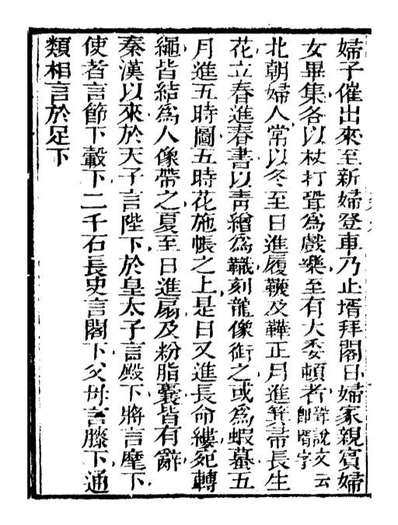 婦子催出來至新婦登車乃止壻拜閣日婦家親賓婦
女畢集各以杖打聟爲戲樂至有大委頓者聟說文云即壻字
北朝婦人常以冬至日進履韈及鞾正月進箕帚長生
花立春進春書以靑繒爲幟刻龍像銜之或爲蝦蟇五
月進五時圖五時花施帳之上是日又進長命縷宛轉
繩皆結爲人像帶之夏至日進扇及粉脂囊皆有辭
秦漢以來於天子言陛下於皇太子言殿下將言麾下
使者言節下轂下二千石長史言閣下父母言膝下通
類相言於足下